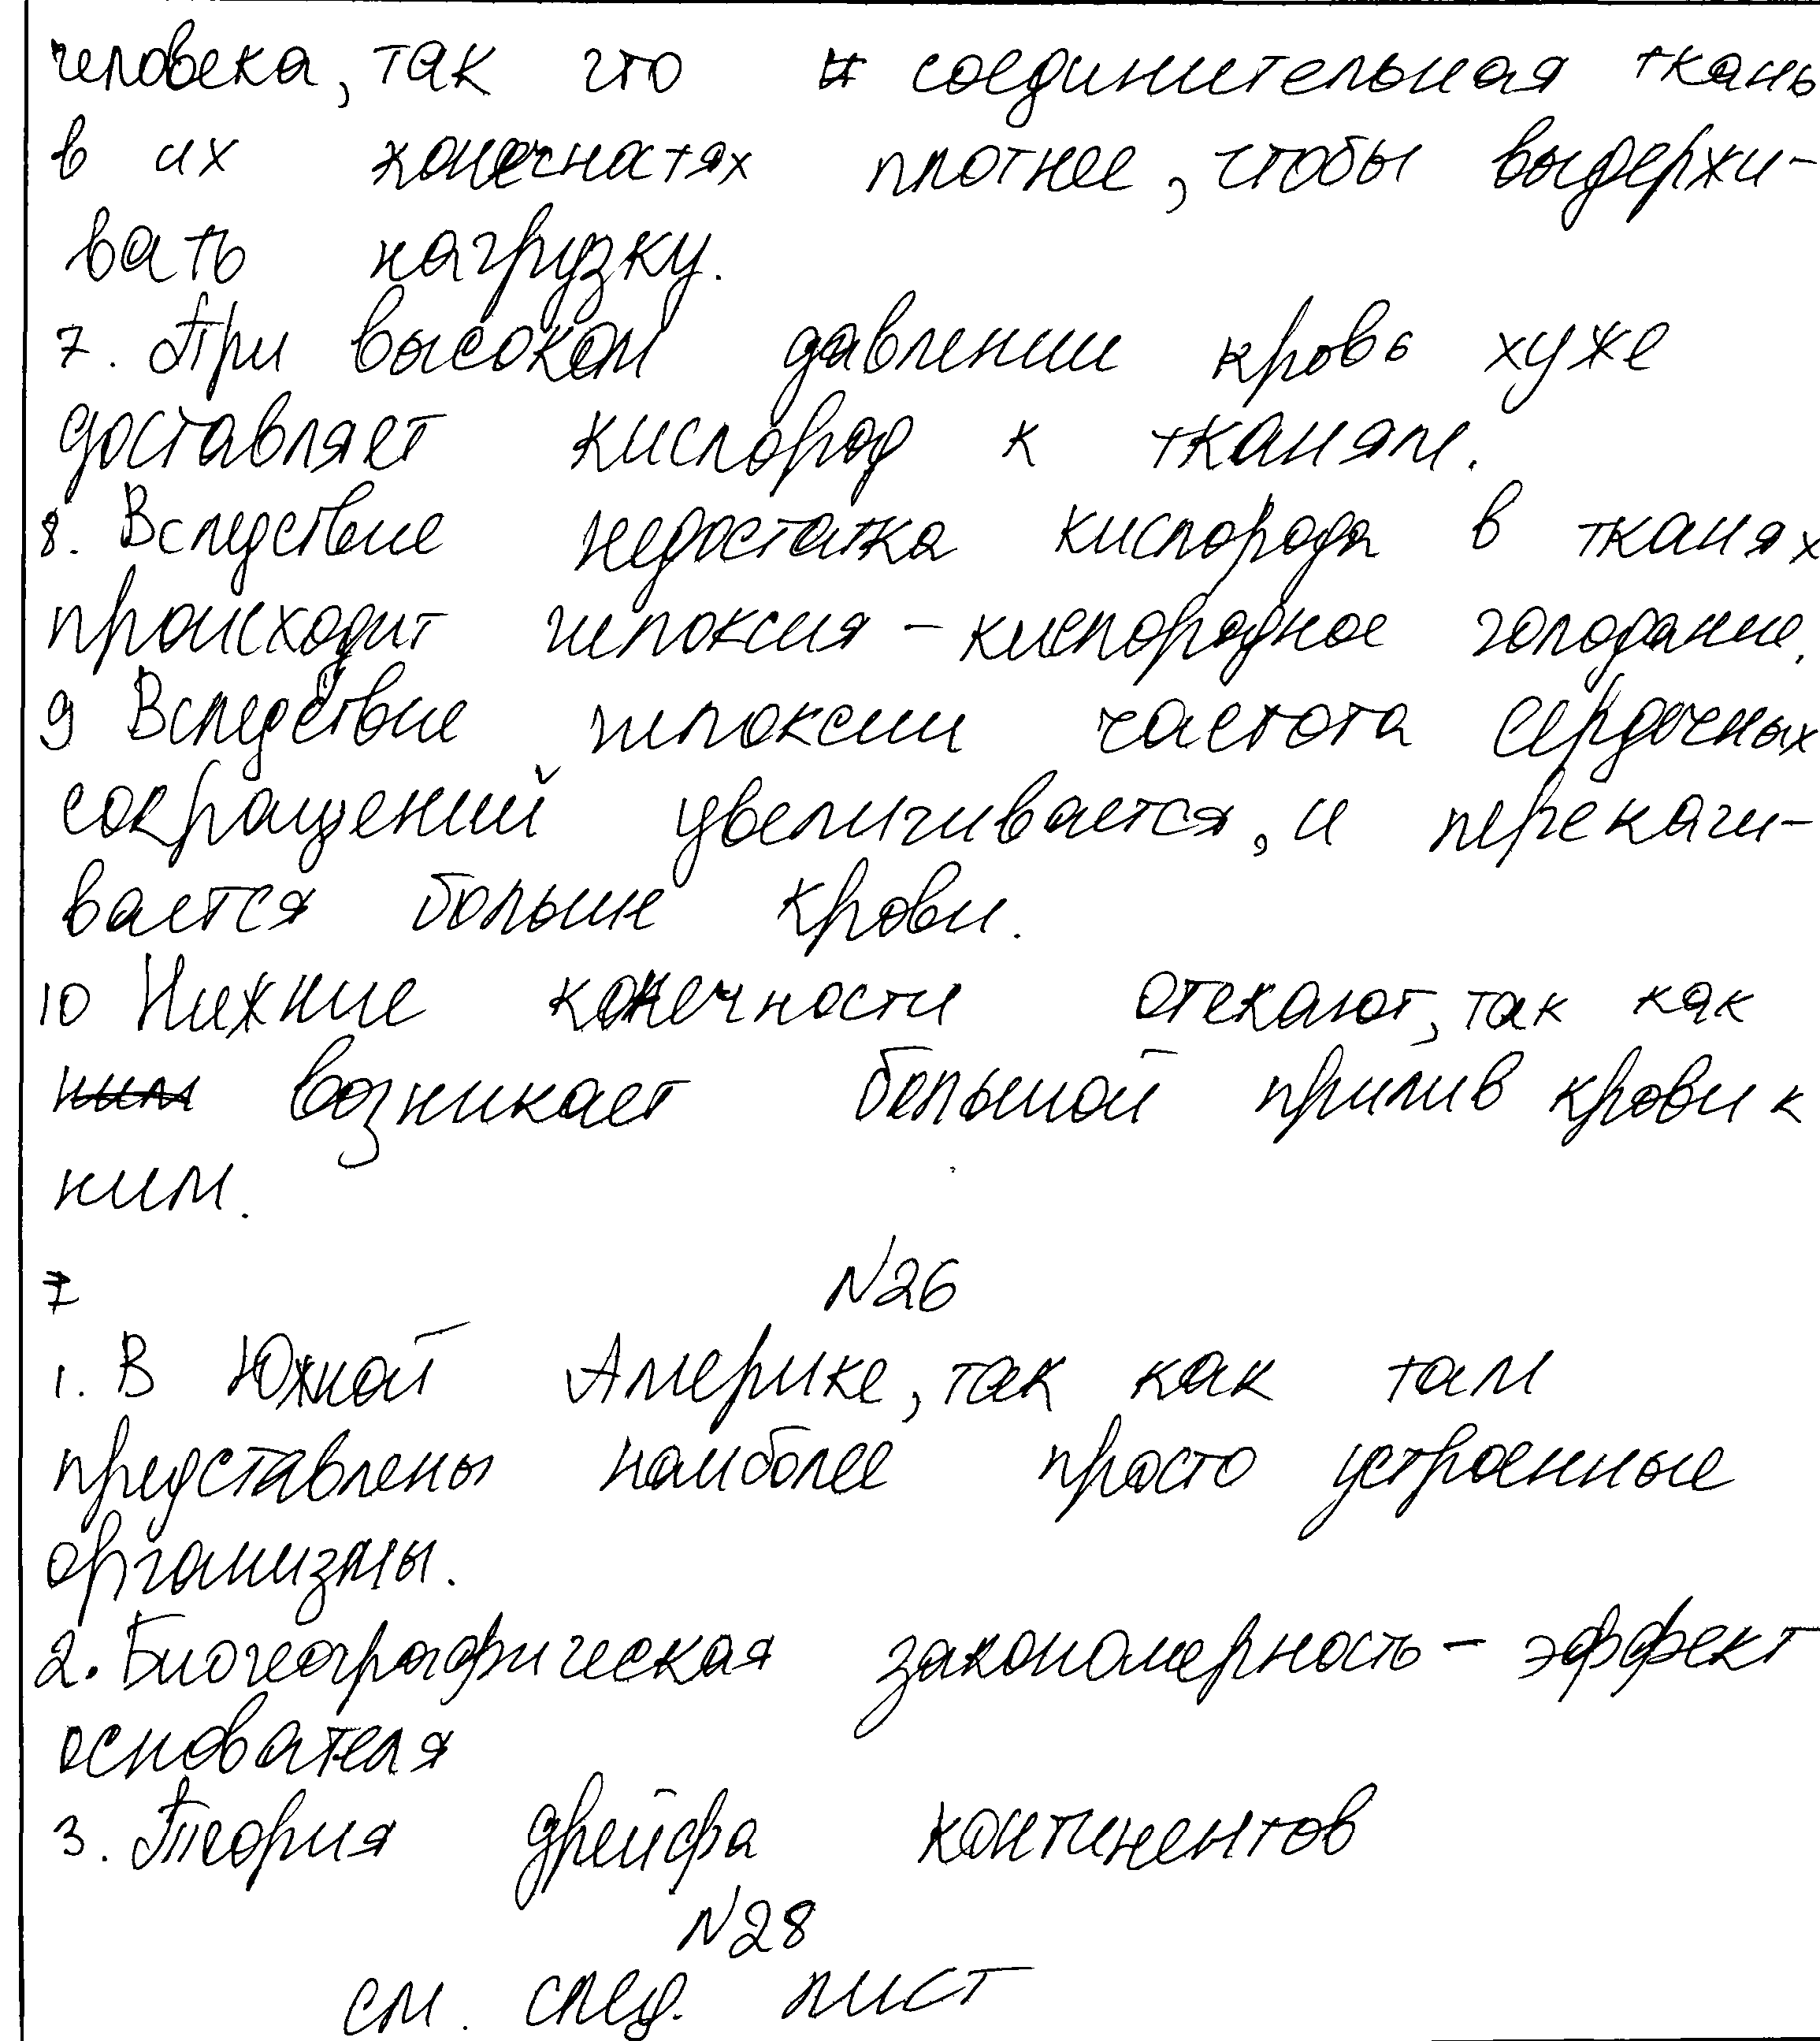 человека, так что соединительная ткань
в их конечностях плотнее, чтобы выдержи-
вать нагрузку.
7. При высоком давлении кровь хуже
доставляет кислород к тканям.
8. Вследствие недостатка кислорода в тканях
происходит гипоксия - кислородное голодание.
9 Вследствие гипоксии частота сердечных
сокращений увеличивается, и перекачи-
вается больше крови.
10 Нижние конечности отекают, так как
ним возникает большой прилив крови к
ним.
№26
1. В Южной Америке, так как там
представлены наиболее просто устроенные
организмы.
2. Биогеографическая закономерность - эффект
основателя
3. Теория дрейфа континентов
№28
см. след. лист